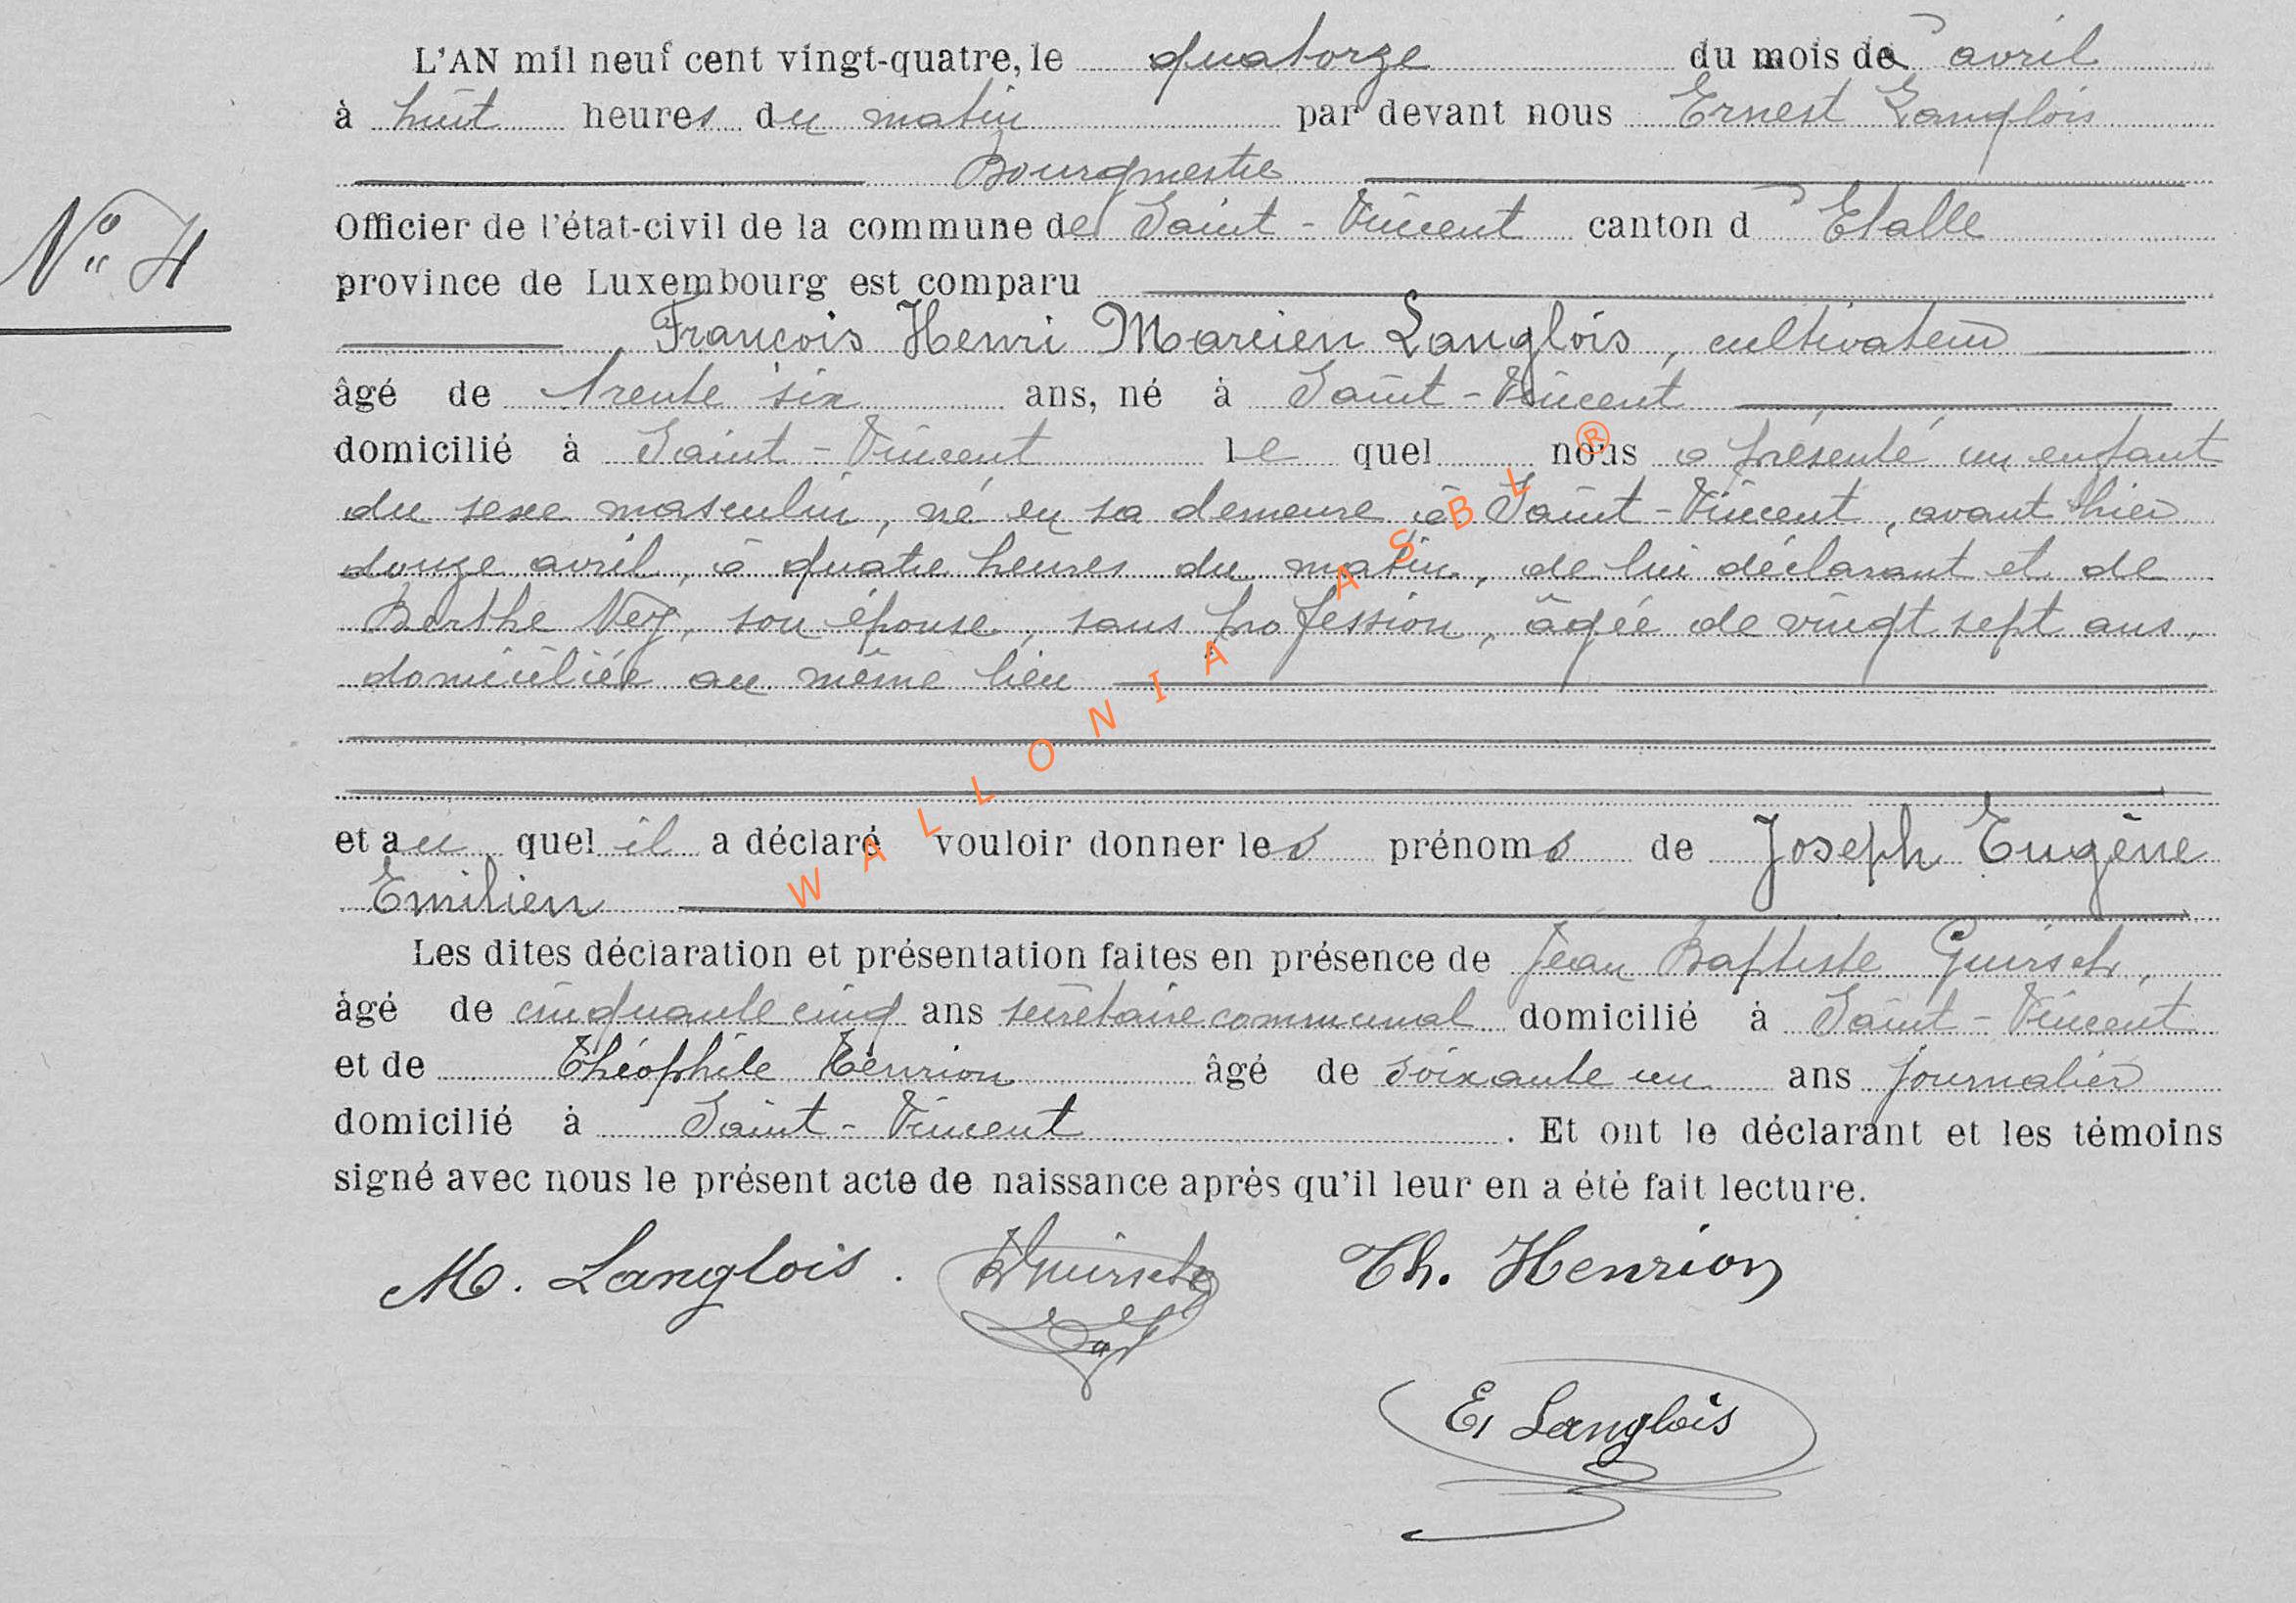 L'AN mil neuf cent vingt-quatre, le quatorze du mois d' avril
à huit heures du matin par devant nous Ernest Langlois
Bourgmestre
Officier de l'état-civil de la commune de Saint-Vincent canton d' Etalle
N° 4
province de Luxembourg est comparu
François Henri Marcien Langlois, cultivateur
âgé de trente six ans, né à Saint-Vincent
domicilié à Saint-Vincent le quel nous a présenté un enfant
du sexe masculin, né en sa demeure à Saint-Vincent, avant hier
douze avril, à quatre heures du matin, de lui déclarant et de
Berthe Ney, son épouse, sans profession, âgée de vingt sept ans,
domiciliée au même lieu
et au quel il a déclaré vouloir donner les prénoms de Joseph Eugène
Emilien
Les dites déclaration et présentation faites en présence de Jean Baptiste Guirsch,
âgé de cinquante cinq ans secrétaire communal domicilié à Saint-Vincent
et de Théophile Henrion âgé de soixante un ans journalier
domicilié à Saint-Vincent. Et ont le déclarant et les témoins
signé avec nous le présent acte de naissance après qu'il leur en a été fait lecture.
M. Langlois. Guirsch Th. Henrion
E. Langlois
WALLONIA ASBL ®